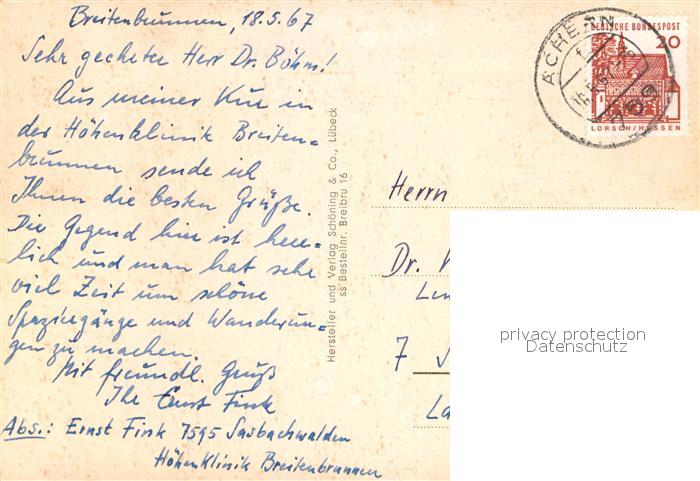 Breitenbrunnen, 18.5.67
Sehr geehrter Herr Dr. Böhm!
Aus meiner Kur in
der Höhenklinik Breiten=
brunnen sende ich
Ihnen die besten Grüße.
Die Gegend hier ist herr=
lich und man hat sehr
viel Zeit um schöne
Spaziergänge und Wanderun=
gen zu machen.
Mit freundl. Gruß
Ihr Ernst Fink
Abs.: Ernst Fink 7595 Sasbachwalden
Höhenklinik Breitenbrunnen
Hersteller und Verlag Schöning & Co., Lübeck
ss Bestellnr. Breibru 16
ACHERN
DEUTSCHE BUNDESPOST
20
LORSCH/HESSEN
Herrn
Dr.
7
privacy protection
Datenschutz